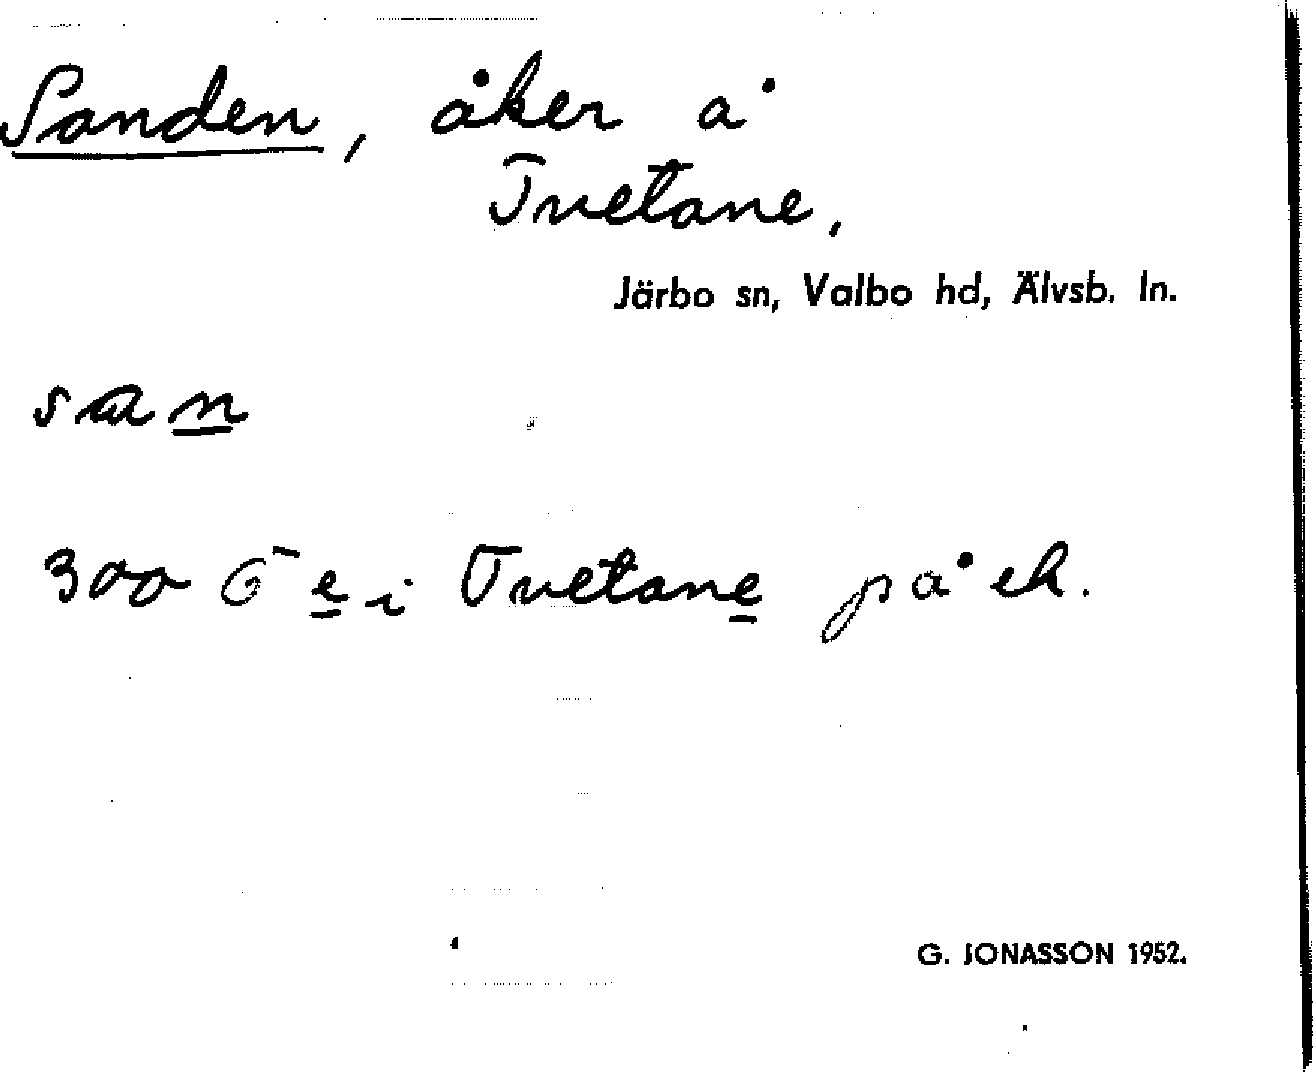 Sanden, åker å
Tvetane,
Järbo sn, Valbo hd, Älvsb. ln.
san
300 Ö e i Tvetane på ek.
G. JONASSON 1952.